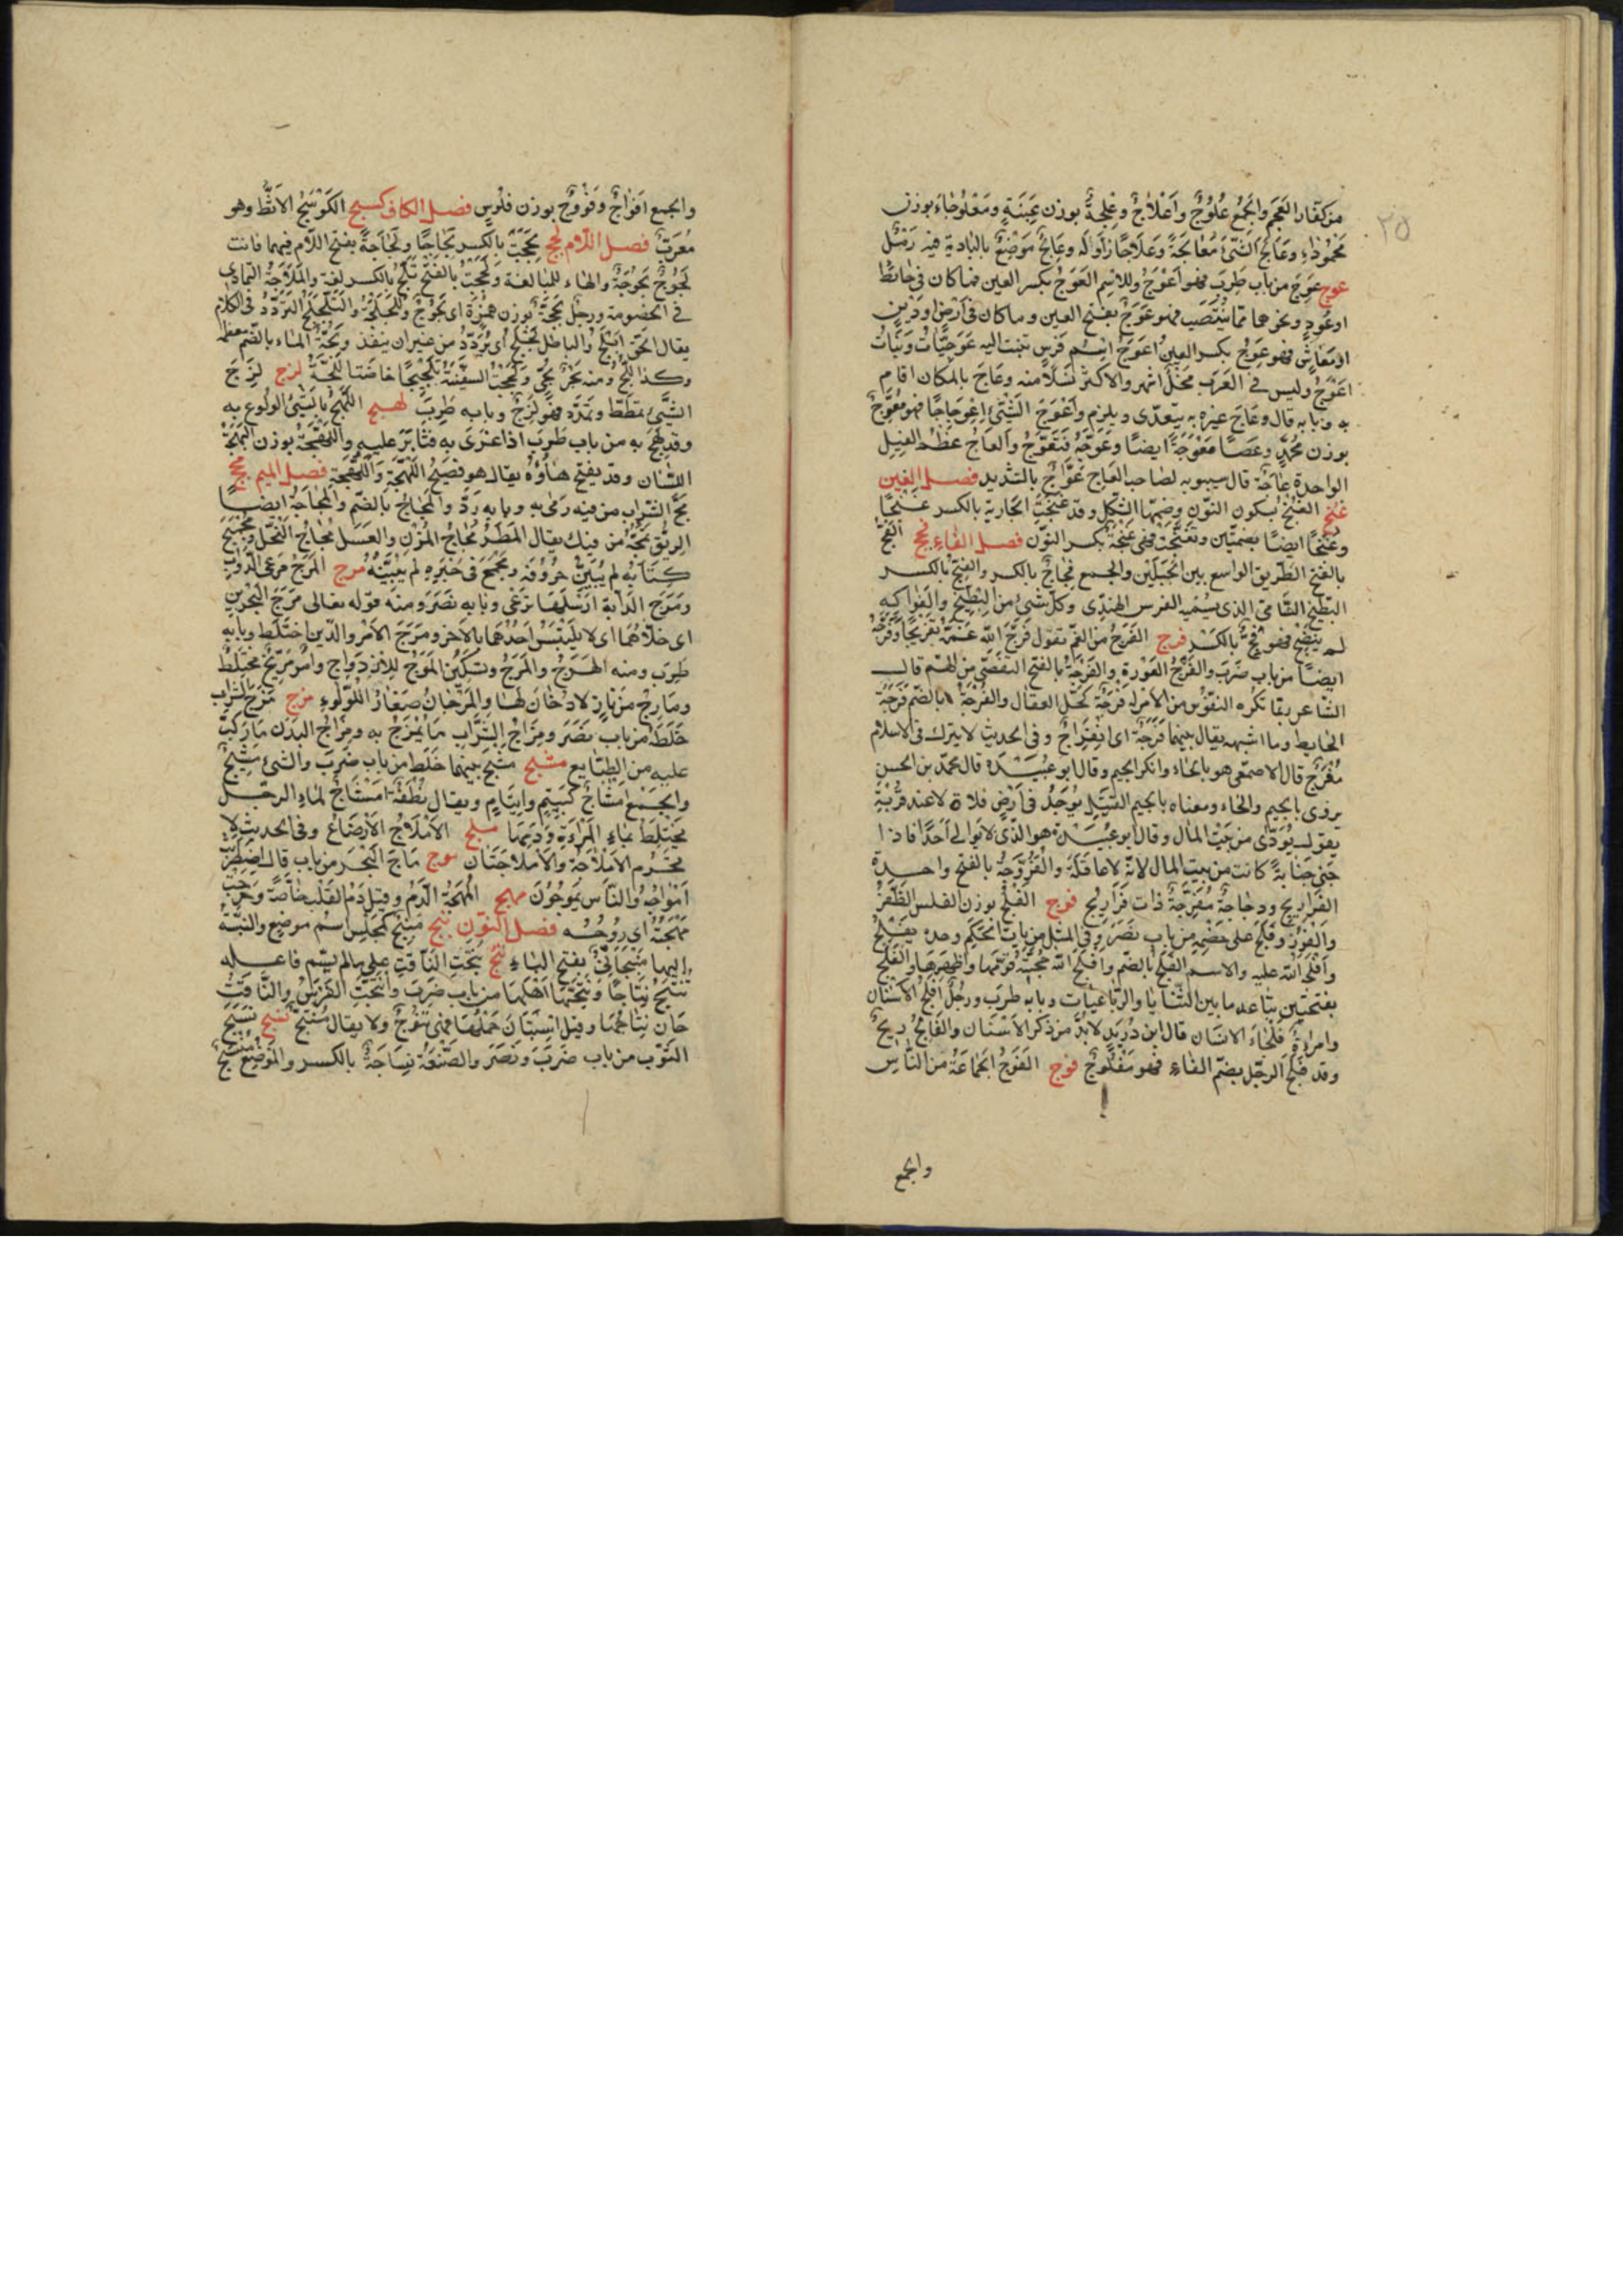 ٢٥
من كفار العجم والجمع علوج وأعلاج وعلجة بوزن عنبة ومعلوجاء بوزن
محموداء وعالج الشئ معالجة وعلاجا زاوله وعالج موضع بالبادية فيه رمل
عوج عوج من باب طرب فهو أعوج والاسم العوج بكسر العين فما كان في حائط
او عود ونحوهما مما ينتصب فهو عوج بفتح العين وما كان في أرض او دين
او معاش فهو عوج بكسر العين اعوج اسم فرس تنسب اليه عوجيات وبنات
اعوج وليس في العرب فحل اشهر ولا اكثر نسلا منه وعاج بالمكان اقام
به وبابه قال وعاج غيره به يتعدى ويلزم واعوج الشئ اعوجاجا فهو معوج
بوزن محمر وعصا معوجة ايضا وعوجه فتعوج والعاج عظم الفيل
الواحدة عاجة قال سيبويه لصاحب العاج عواج بالتشديد فصل الغين
غنج الغنج بسكون النون وضمها الشكل وقد غنجت الجارية بالكسر غنجا
وغنجا ايضا بضمتين وتغنجت فهي غنجة بكسر النون فصل الفاء فجج الفج
بالفتح الطريق الواسع بين الجبلين والجمع فجاج بالكسر والفج بالكسر
البطيخ الشامي الذي يسميه الفرس الهندي وكل شئ من البطيخ والفواكه
لم ينضج فهو فج بالكسر فرج الفرج من الغم تقول فرج الله غمه تفريجا وفرجه
ايضا من باب ضرب والفرج العورة والفرجة بالفتح التفصي من الهم قال
الشاعر ربما تكره النفوس من الأمر له فرجة كحل العقال والفرجة بالضم فرجة
الحايط وما اشبهه يقال بينهما فرجة اى انفراج وفي الحديث لا يترك في الاسلام
مفرج قال الاصمعي هو بالحاء وانكر الجيم وقال ابو عبيدة قال محمد بن الحسن
يروى بالجيم والحاء ومعناه بالجيم القتيل يوجد في أرض فلاة لا عند قرية
يقول يودى من بيت المال وقال ابو عبيدة هو الذي لا يوالي احدا فاذا
جنى جناية كانت من بيت المال لانه لا عاقلة والفروجة بالفتح واحدة
الفراريج ودجاجة مفرجة ذات فراريج فلج الفلج بوزن الفلس الظفر
والفوز وفلج على خصمه من باب نصر وفي المثل من يأت الحكم وحده يفلج
وافلجه الله عليه والاسم الفلج بالضم وافلج الله حجته قومها واظهرها والفلج
بفتحتين تباعد ما بين الثنايا والرباعيات وبابه طرب ورجل افلج الاسنان
وامرأة فلجاء الاسنان قال ابن دريد لا بد من ذكر الاسنان والفالج ريح
وقد فلج الرجل بضم الفاء فهو مفلوج فوج الفوج الجماعة من الناس
والجمع
والجمع افواج وفووج بوزن فلوس فصل الكاف كسج الكوسج الاثط وهو
معرب فصل اللام لجج لججت بالكسر لجاجا ولجاجة بفتح اللام فيهما فانت
لجوج ولجوجة والهاء للمبالغة ولججت بالفتح تلج بالكسر لغة والملاجة التمادي
في الخصومة ورجل لججة بوزن همزة اى لجوج واللجلجة والتلجلج التردد في الكلام
يقال الحق ابلج والباطل لجلج اى يردد من غير ان ينفذ ولجة الماء بالضم معظمه
وكذا اللج ومنه بحر لجي ولججت السفينة تلجيجا خاضت اللجة لزج لزج
الشئ تمطط وتمدد فهو لزج وبابه طرب لهج اللهج بالشئ الولوع به
وقد لهج به من باب طرب اذا اغرى به فثابر عليه واللهجة بوزن البهجة
اللسان وقد يفتح هاؤه يقال هو فصيح اللهجة واللهجة فصل الميم مجج
مج الشراب من فيه رمى به وبابه رد والمجاج بالضم والمجاجة ايضا
الريق تمجه من فيك يقال المطر مجاج المزن والعسل مجاج النحل ومجمج
كتابه لم يبين حروفه ومجمج في خبره لم يبينه مرج المرج مرعى الدواب
ومرج الدابة ارسلها ترعى وبابه نصر ومنه قوله تعالى مرج البحرين
اى خلاهما اى لا يلتبس احدهما بالآخر ومرج الامر والدين اختلط وبابه
طرب ومنه الهرج والمرج وتسكين المرج للازدواج وامر مريج مختلط
ومارج من نار نار لا دخان لها والمرجان صغار اللؤلؤ مزج مزج الشراب
خلطه من باب نصر ومزاج الشراب ما يمزج به ومزاج البدن ما ركب
عليه من الطبايع مشج مشج بينهما خلط من باب ضرب والشئ مشيج
والجمع امشاج كيتيم وايتام ويقال نطفة امشاج لماء الرجل
يختلط بماء المرأة ودمها ملج الاملاج الارضاع وفي الحديث لا
تحرم الاملاجة والاملاجتان موج ماج البحر من باب قال اضطربت
امواجه والناس يموجون مهج المهجة الدم وقيل دم القلب خاصة وخرجت
مهجته اى روحه فصل النون نبج منبج كمجلس اسم موضع والنسبة
اليها منبجاني بفتح الباء نتج نتجت الناقة على ما لم يسم فاعله
تنتج نتاجا ونتجها اهلها من باب ضرب وانتجت الفرس والناقة
حان نتاجها وقيل استبان حملها فهي نتوج ولا يقال منتج نسج نسج
الثوب من باب ضرب ونصر والصنعة نساجة بالكسر والموضع منسج